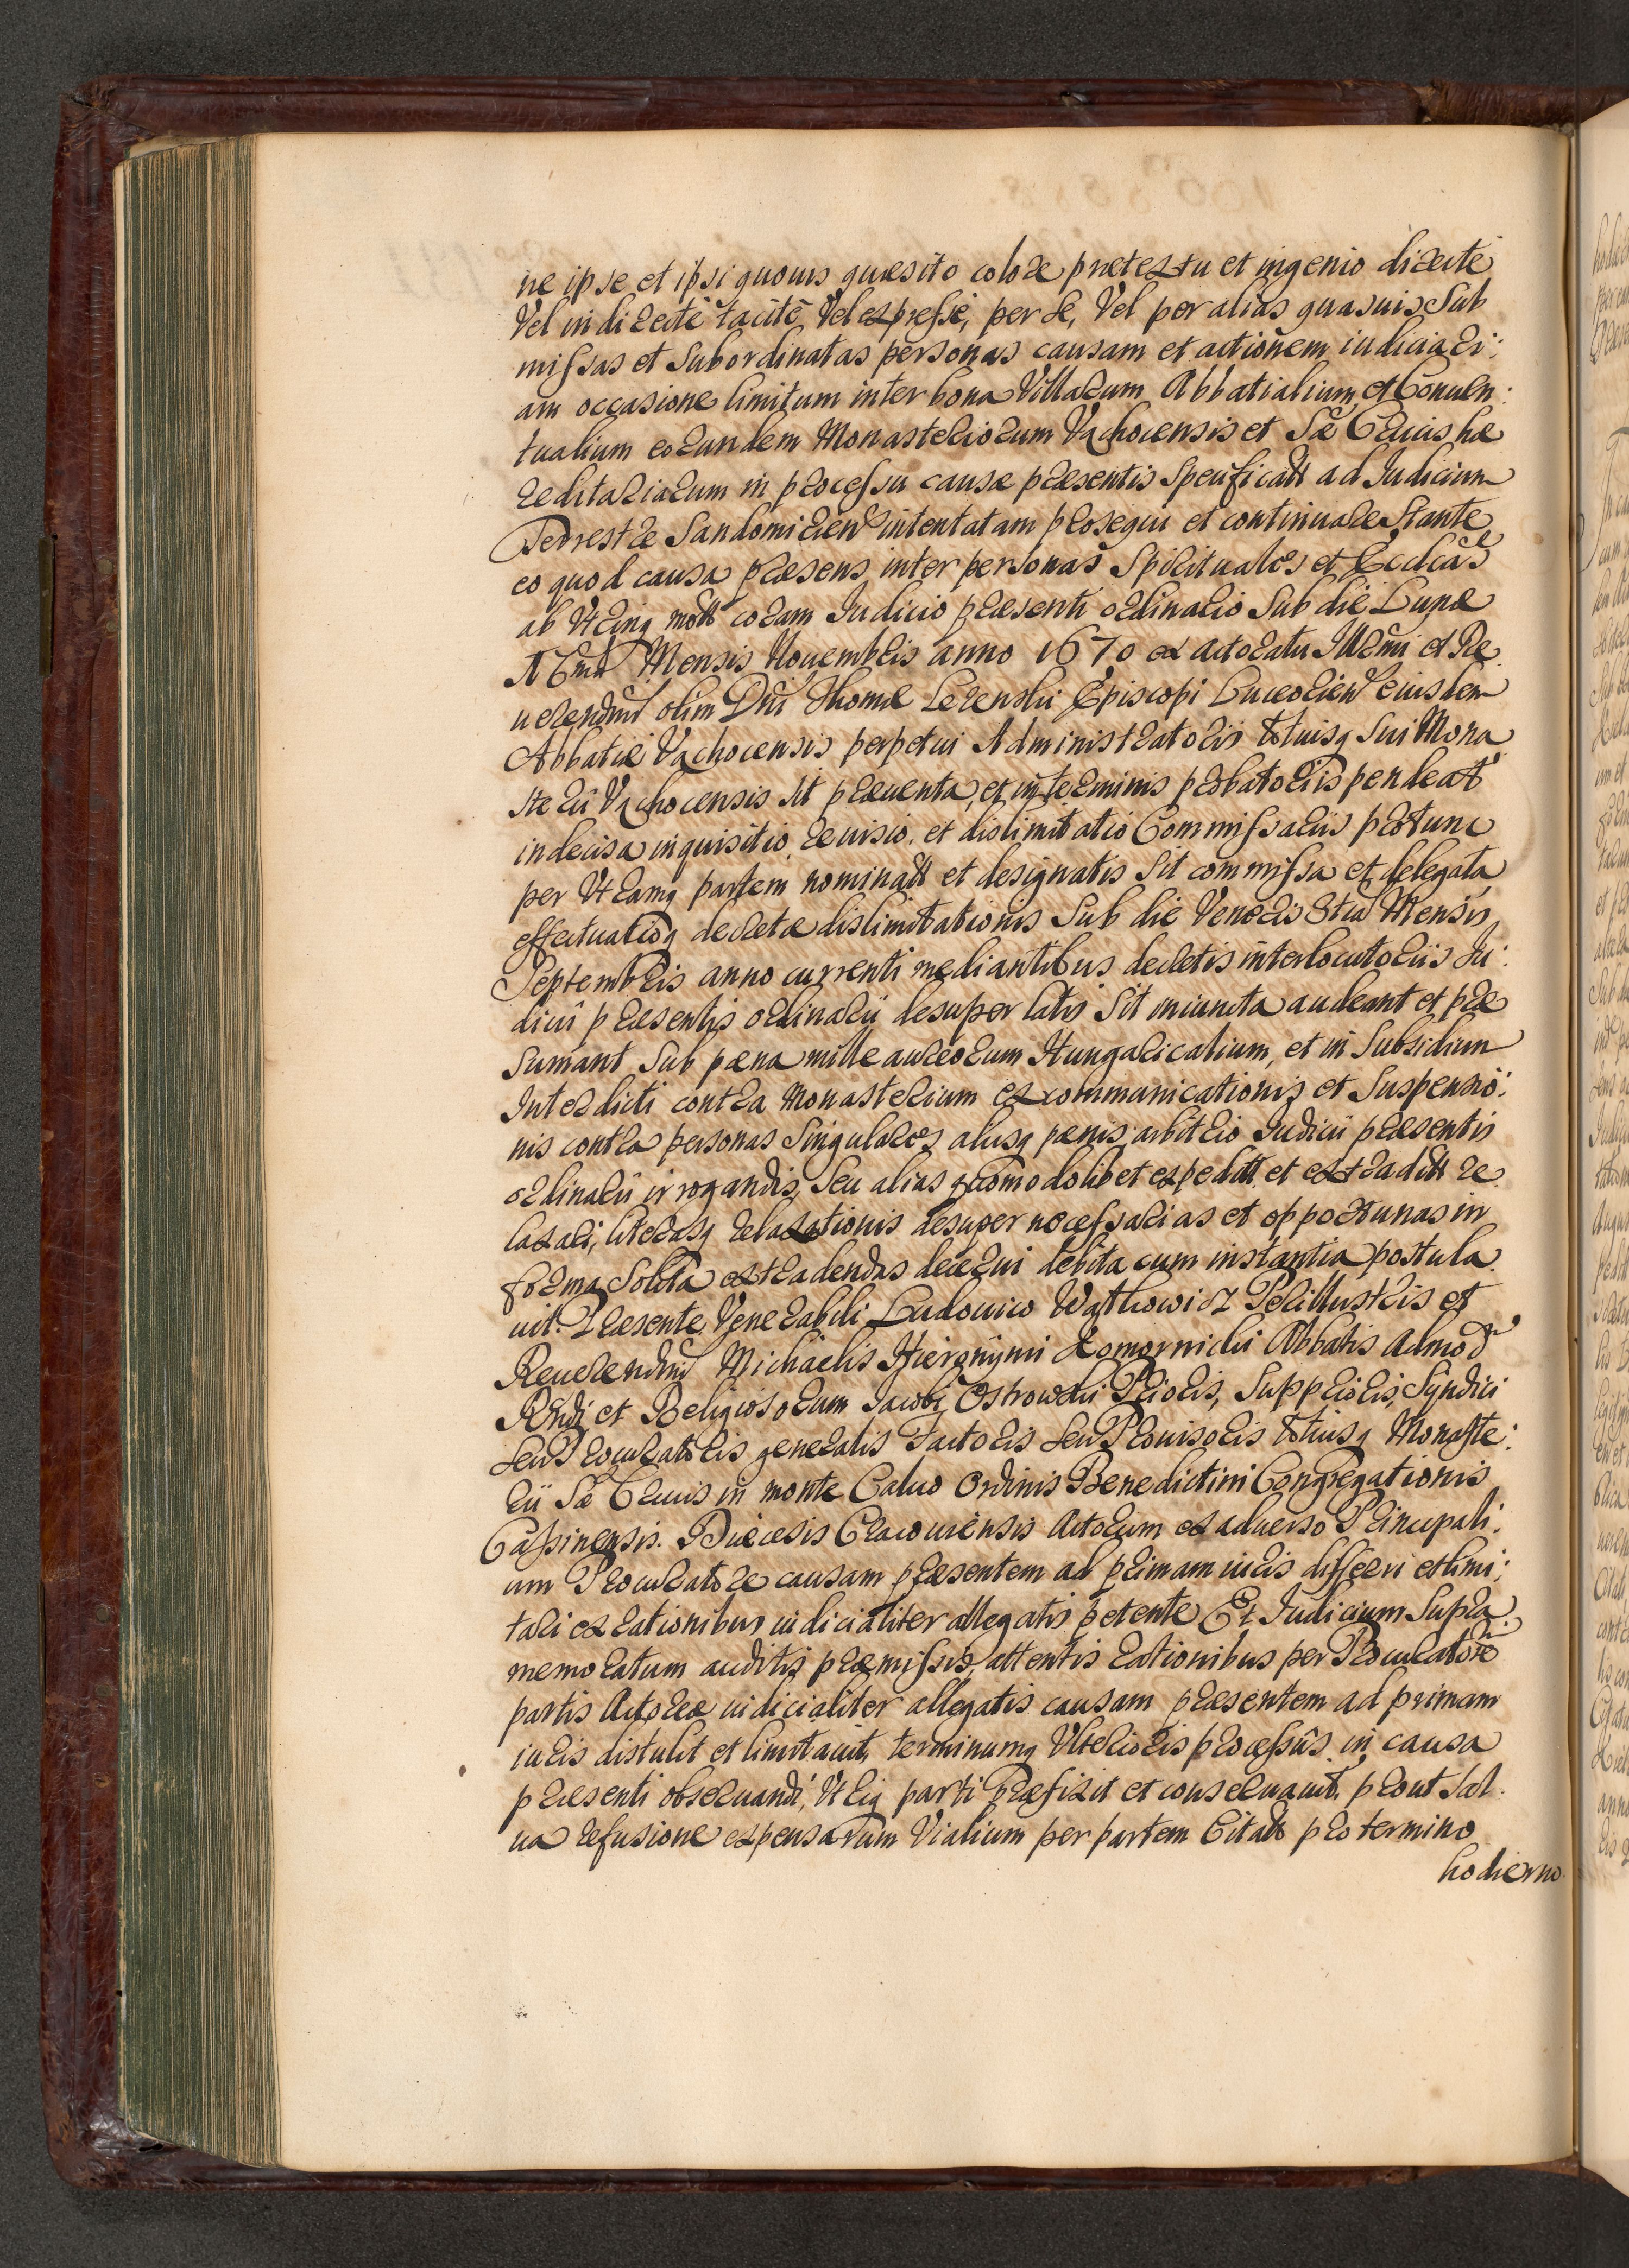 ne ipse et ipsi quouis quæsito colore prætextu et ingenio directè
Vel indirectè tacitè Vel expressè, per se, Vel per alias quasuis Sub
missas et Subordinatas personas causam et actionem iudiciari:
am occasione limitum inter bona Villarum Abbatialium et Conuen:
tualium eorundem Monasteriorum Vąchocensis et Sæ Crucis hæ
reditariarum in processu causæ præsentis Specificatt ad Iudicium
Terrestre Sandomirien intentatam prosequi et continuare Stante
eo quod causa præsens inter personas Spirituales et Ecclicas
ab Vtrinq mott coram Iudicio præsenti ordinario Sub die Lunæ
Mensis Nouembris anno 1670 ex actoratu Illrmi et Re
uerendmi olim Dni Thomæ Lezenski Episcopi Luceorien eiusdem
Abbatiæ Vąchocensis perpetui Administratoris totiusq Sui Mona
sterii Vąchocensis sit præuenta, et in terminis probatoriis pendeat
indecisa inquisitio, reuisio, et dislimitatio Commissariis protunc
per Vtramq partem nominatt et designatis Sit commissa et delegata
effectuatioq decretæ dislimitationis Sub die Veneris 8tia Mensis
Septembris anno currenti mediantibus decretis interlocutoriis Iu:
dicii præsentis ordinarii desuper latis Sit iniuncta audeant et præ
Sumant Sub pæna mille aureorum Hungaricalium, et in Subsidium
Interdicti contra Monasterium excommunicationis et Suspensio:
nis contra personas Singulares aliisq pænis arbitrio Iudicii præsentis
ordinarii irrogandis, Seu alias quomodolibet expeditt, et extraditt re
laxari, literasq relaxationis desuper necessarias et opportunas in
forma Solita extradendas decerni debita cum instantia postula
uit. Præsente Venerabili Ludouico Wątkowicz Perillustris et
Reuerendmi Michaelis Hieronymi Komornicki Abbatis Admod
Rndi et Religiosorum Iacobi Ostrowski Prioris, Supprioris, Syndici
seu Procuratoris generalis Factoris seu Prouisoris totiusq Monaste:
rii Sæ Crucis in monte Caluo Ordinis Benedictini Congregationis
Cassinensis. Diæcesis Cracouiensis Actorum ex aduerso Principali:
um Procuratore causam præsentem ad primam iuris differri et limi:
tari ex rationibus iudicialiter allegatis petente Et Iudicium Supra
memoratum auditis præmissis, attentis rationibus per Procuratore
partis Actoreæ iudicialiter allegatis causam præsentem ad primam
iuris distulit et limitauit, terminumq Vlterioris processus in causa
præsenti obseruandi, Vtriq parti præfixit et conseruauit, prout Sal
ua refusione expensarum Vialium per partem Citatt pro termino
hodierno